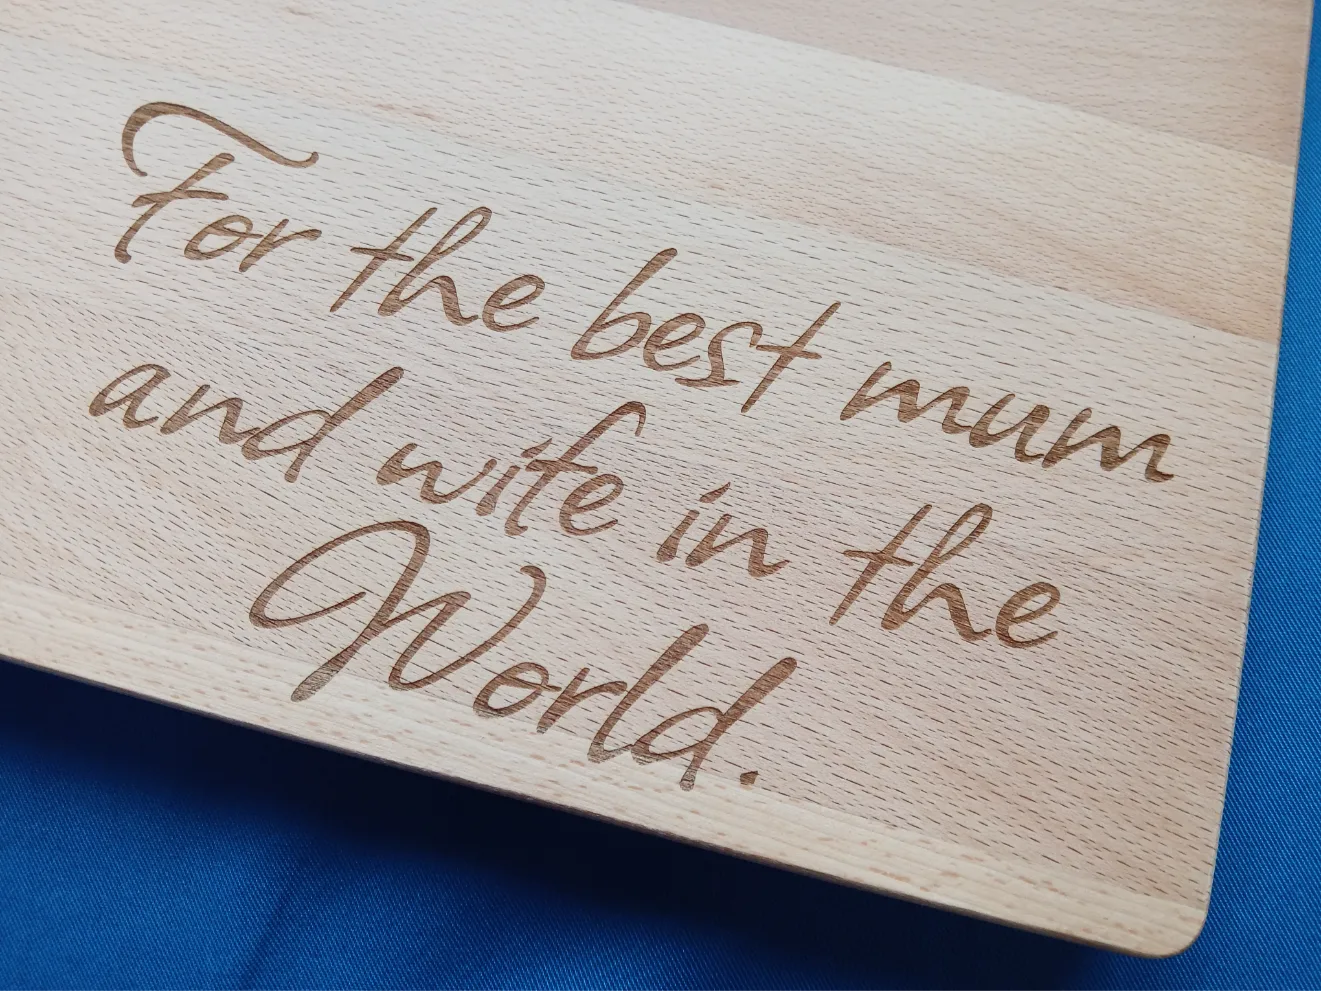 For the best mum
and wife in the
World.